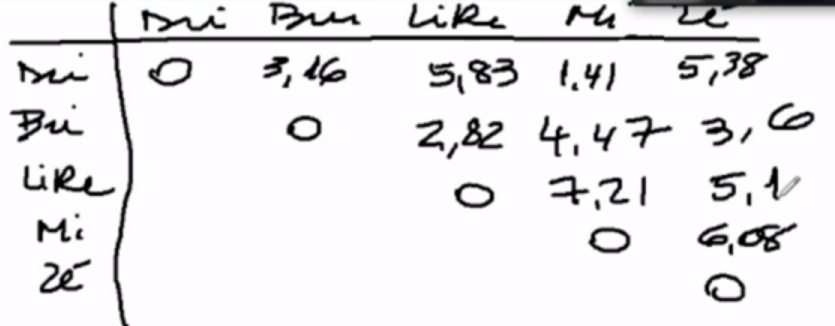 Dri Bru Like Mi Zé
Dri 0 3,16 5,83 1,41 5,38
Bri 0 2,82 4,47 3,6
Like 0 7,21 5,1
Mi 0 6,08
Zé 0